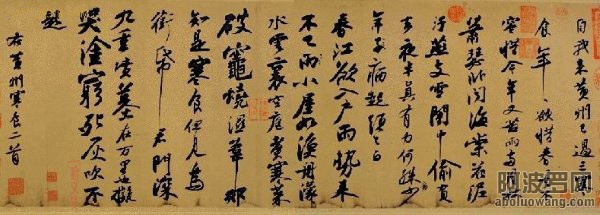 自我來黃州已過三寒
食年年欲惜春春去不
容惜今年又苦雨兩月秋
蕭瑟臥聞海棠花泥
汙燕支雪闇中偷負
去夜半真有力何殊少
年子病起頭已白
春江欲入戶雨勢來
不已小屋如漁舟濛濛
水雲裏空庖煮寒菜
破竈燒濕葦那
知是寒食但見烏
銜帋君門深
九重墳墓在万里也擬
哭塗窮死灰吹不
起
右黃州寒食二首
阿波罗网
aboluowang.com